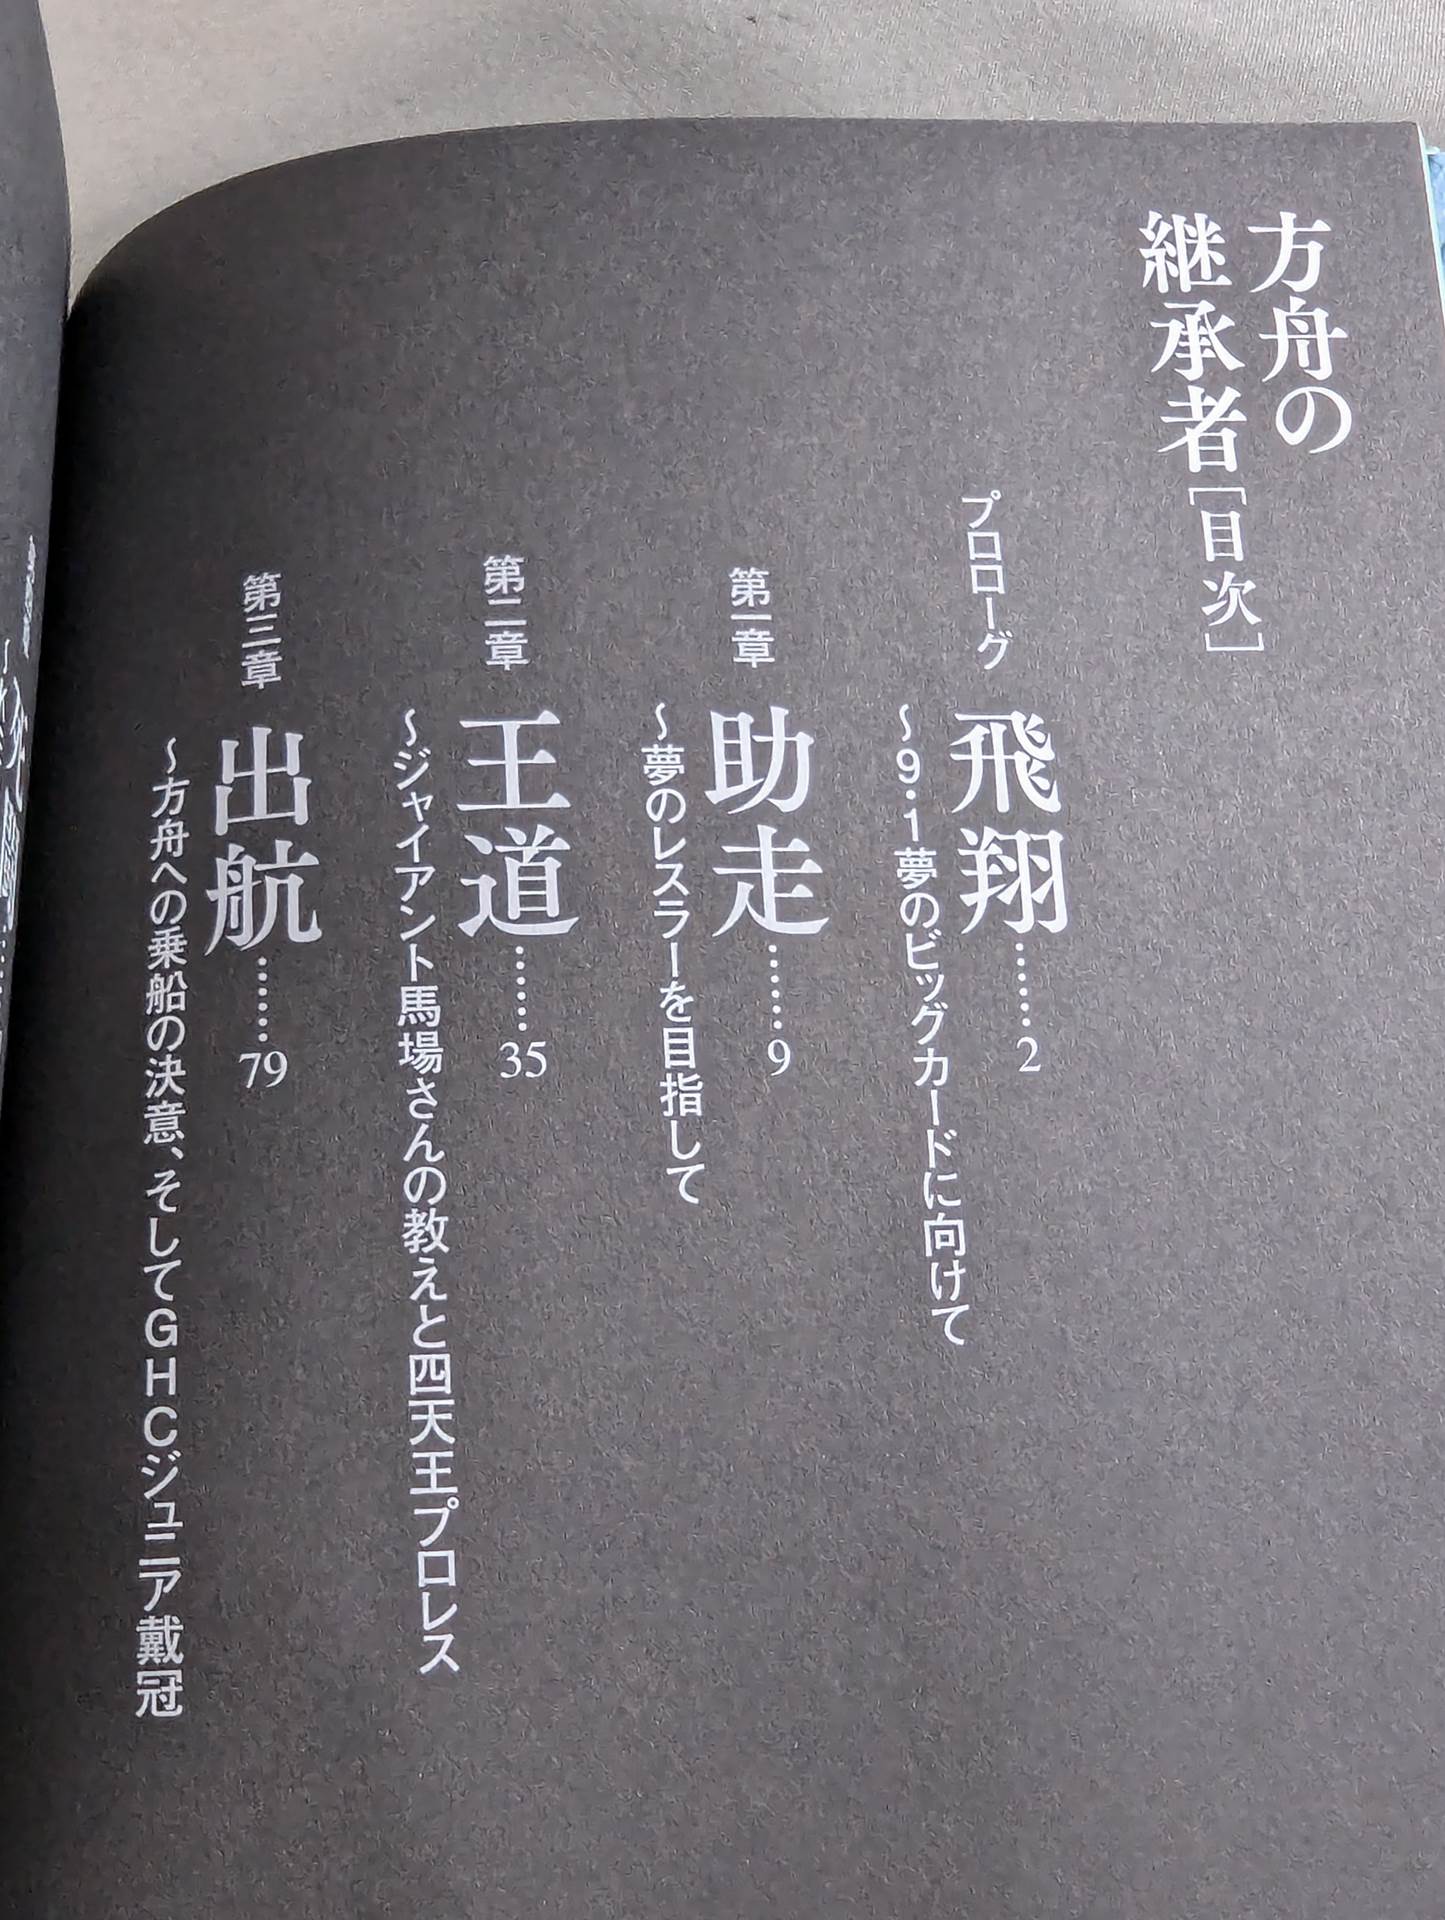 方舟の
継承者[目次]
プロローグ 飛翔……2
～9・1夢のビッグカードに向けて
第一章 助走……9
～夢のレスラーを目指して
第二章 王道……35
～ジャイアント馬場さんの教えと四天王プロレス
第三章 出航……79
～方舟への乗船の決意、そしてGHCジュニア戴冠